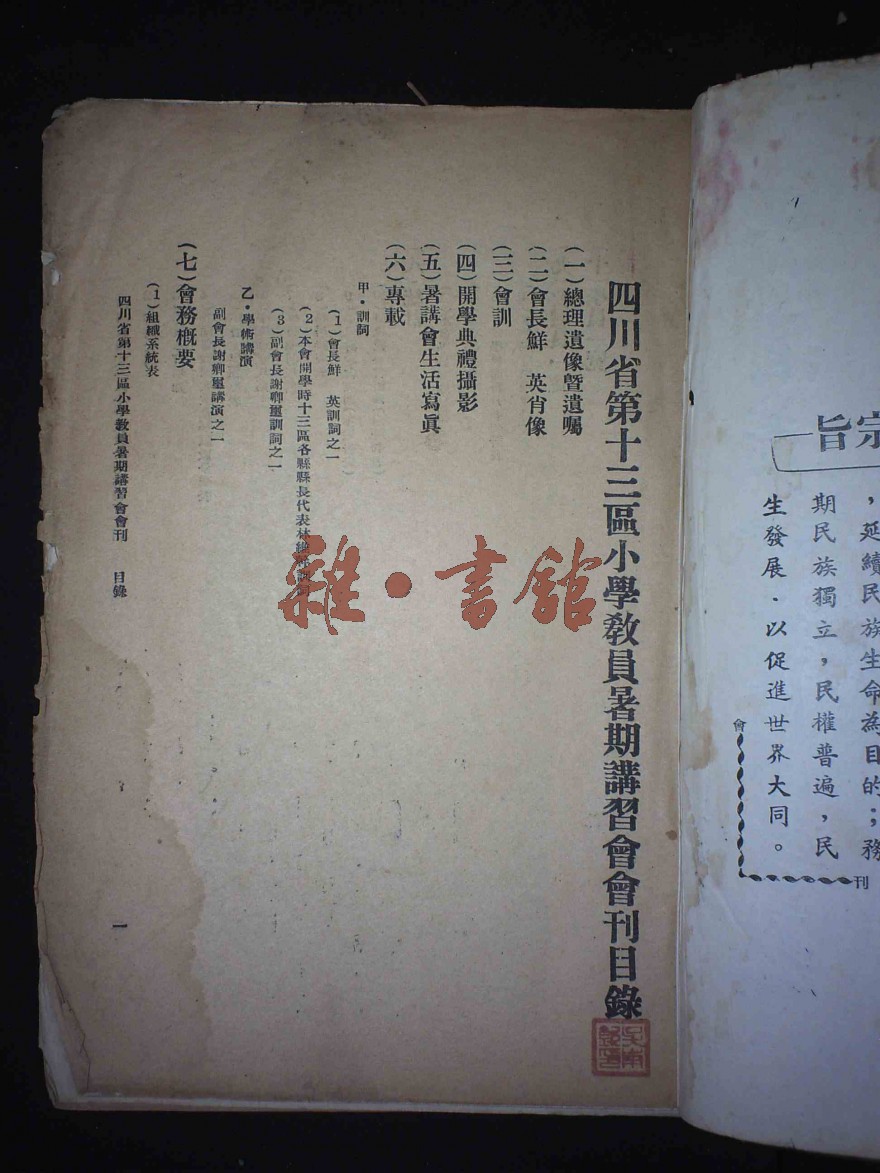 四川省第十三區小學教員暑期講習會會刊目錄
(一)總理遺像暨遺囑
(二)會長鮮　英肖像
(三)會訓
(四)開學典禮攝影
(五)暑講會生活寫眞
(六)專載
甲・訓詞
(1)會長鮮　英訓詞之一
(2)本會開學時十三區各縣縣長代表林
(3)副會長謝卿璽訓詞之一
乙・學術講演
副會長謝卿璽講演之一
(七)會務槪要
(1)組織系統表
四川省第十三區小學教員暑期講習會會刊　目錄
一
雜・書館
旨宗
，延續民族生命為目的；務
期民族獨立，民權普遍，民
生發展．以促進世界大同。
會
刊